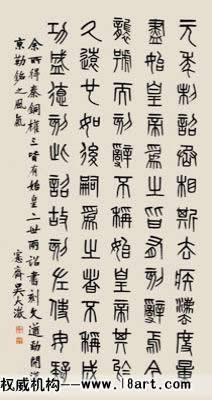 元年制詔丞相斯去疾灋度量
盡始皇帝爲之皆有刻辭焉今
襲號而刻辭不稱始皇帝其於
久遠也如後嗣爲之者不稱成
功盛德刻此詔故刻左使毋疑
余所得秦銅權三皆有始皇二世兩詔書刻文遒勁開漢
京勒銘之風氣
愙齋吳大澂
权威机构----www.18art.com